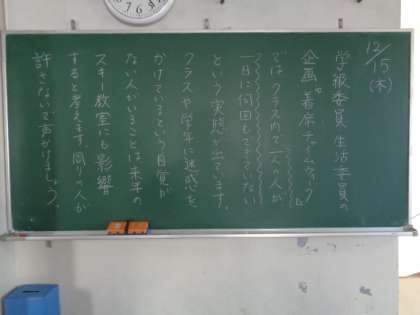 12/15(木)
学級委員、生活委員の
企画"着席チャイムウィーク"
では、クラス内で一人の人が
一日に何回もできていない
という実感が出ています。
クラスや学年に迷惑を
かけているという自覚が
ない人がいることは来年の
スキー教室にも影響
すると考えます。周りの人が
許さないで声がけましょう。